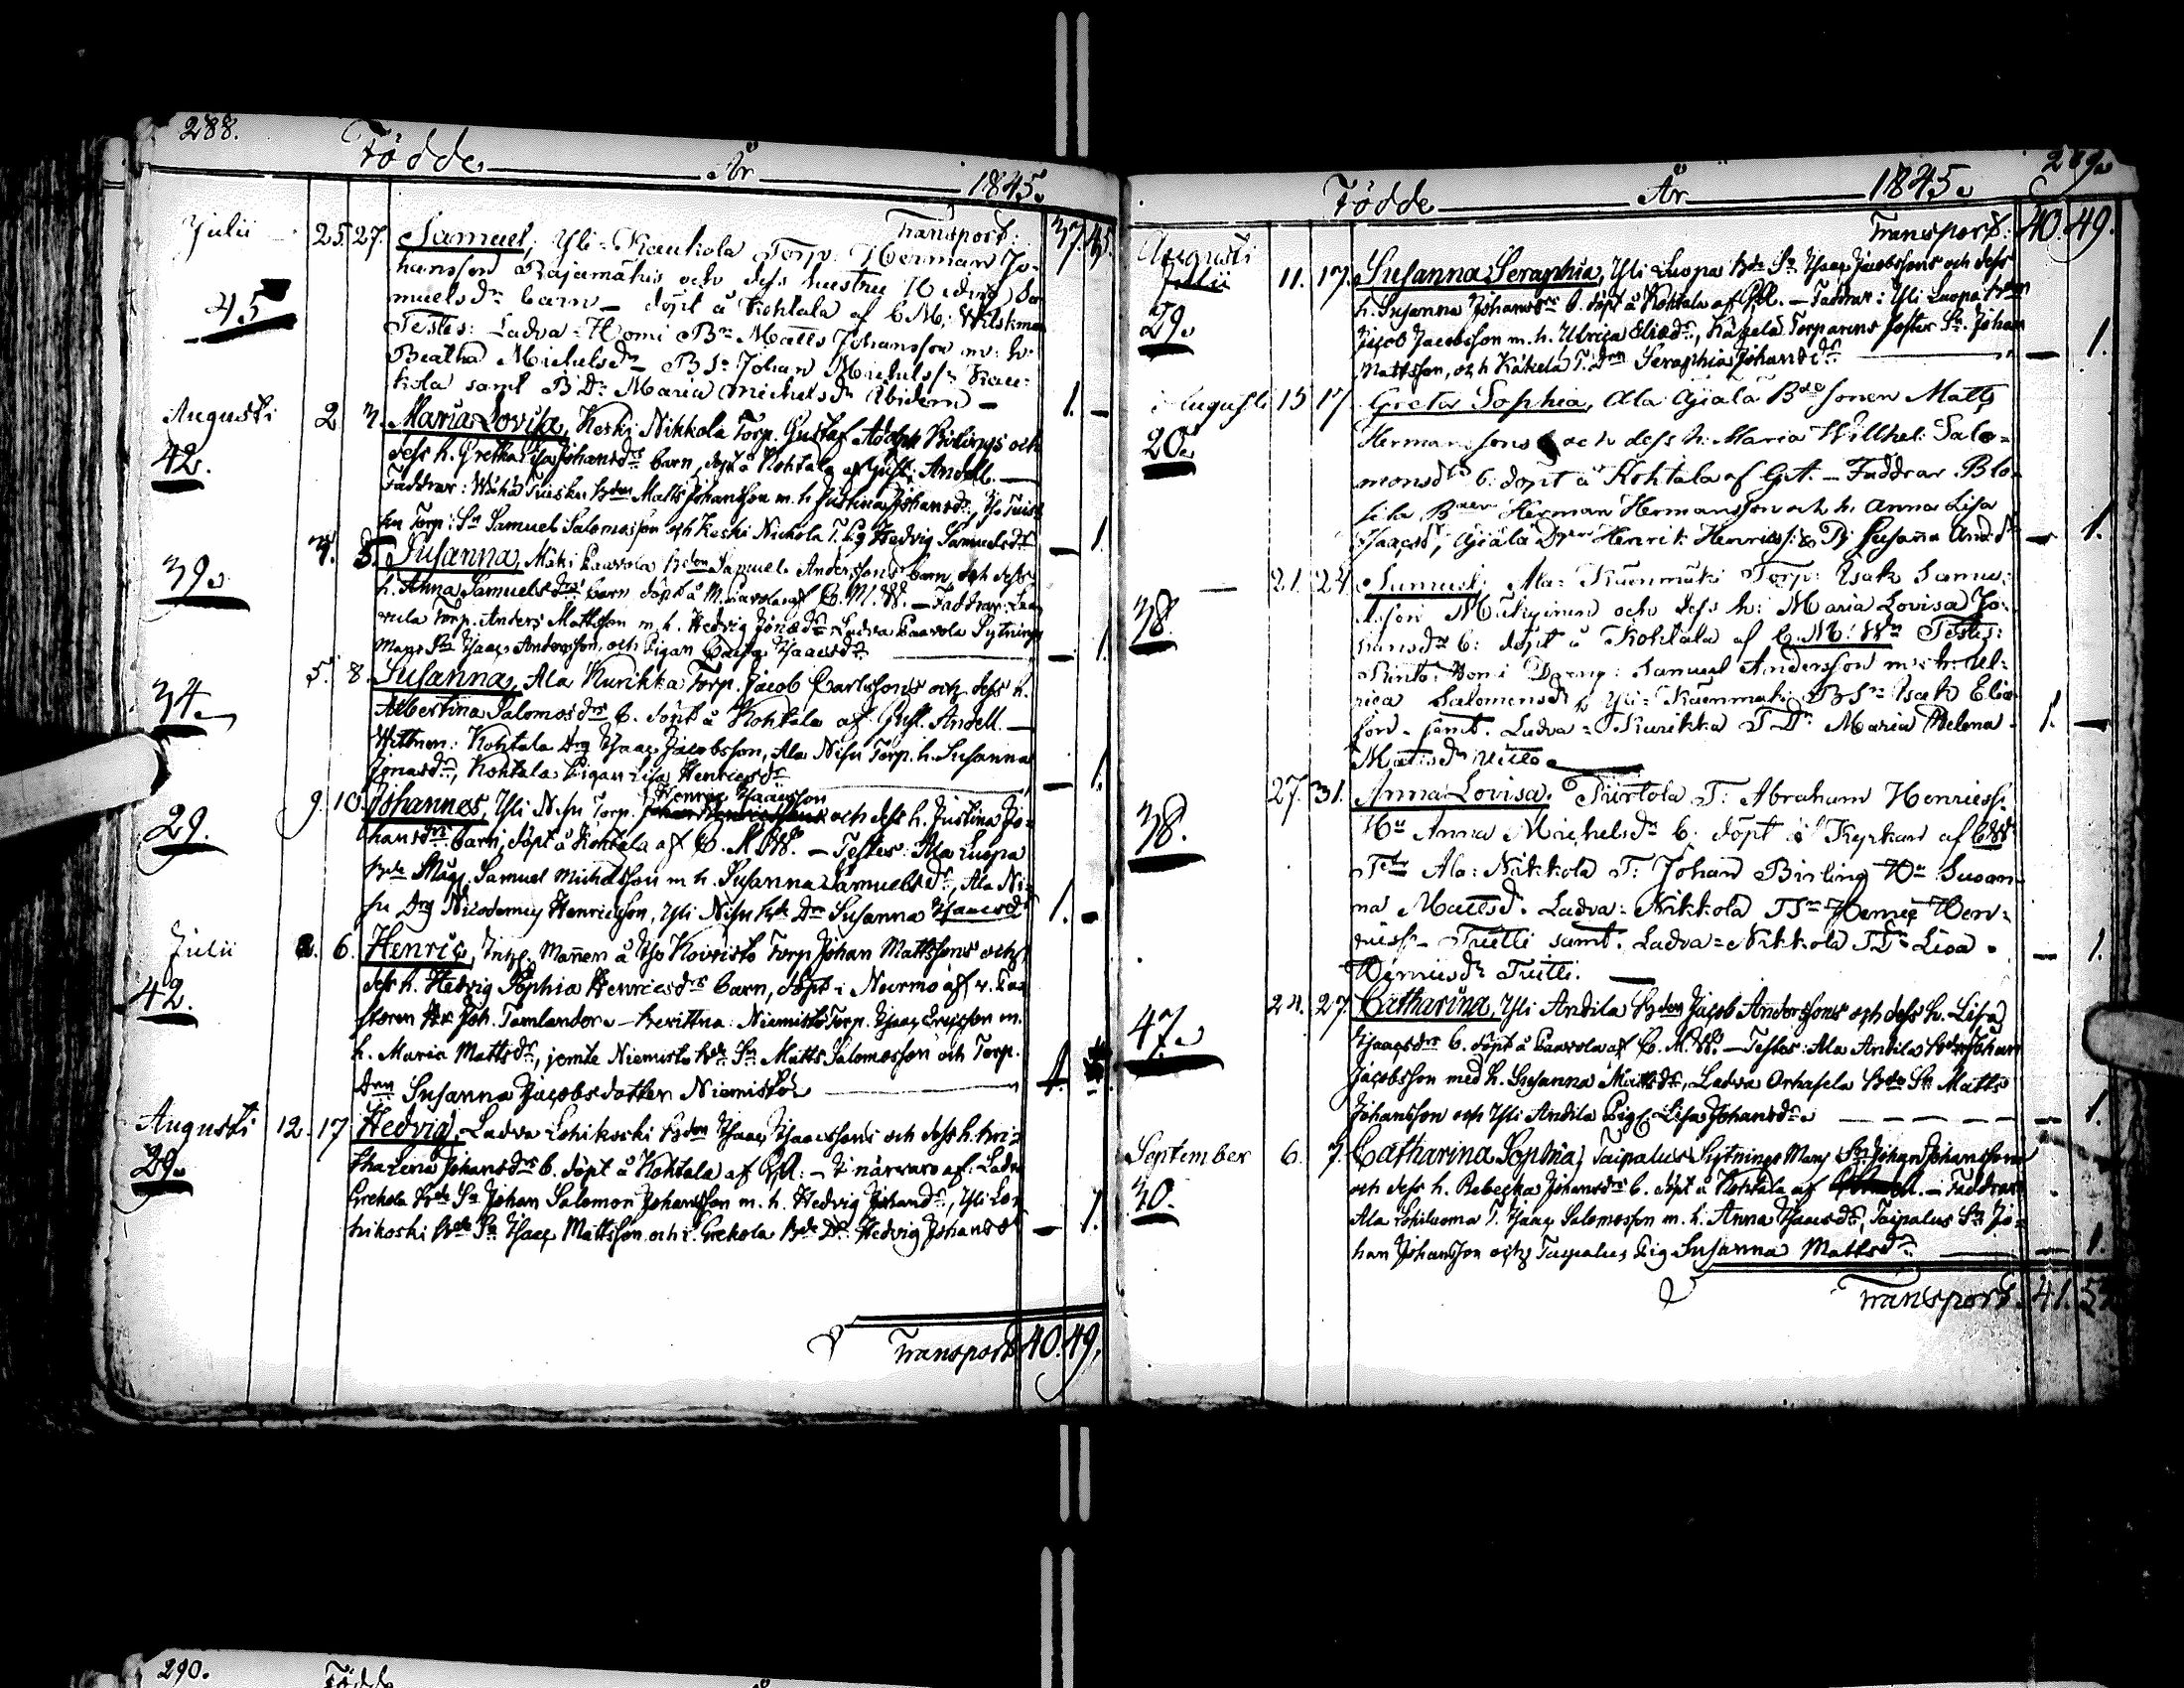 288.
Födde År 1845.
Transport: 37. 45.
Julii 25. 27. Samuel, Yli-Kaukola Torp: Herman Jo-
hansson Rajamäkis och dess hustru Hedvig Sa
muelsdr barn – döpt å Kohtala af C. M. Wilskman
45 Testes: Ladva-Homi Br Matts Johansson m: h:
Beatha Michelsdr B Sn Johan Michelss: Kau-
kola samt B Dr Maria Michelsdr ibidem – 1. –
Augusti 2. 3. Maria Lovisa, Keski Nikkola Torp. Gustaf Adolph Birlings och
42. dess h. Gretha Lisa Johansdrs barn, döpt å Kohtala af Gust. Andell. —
Faddrar: Wähä Tuisku Bden Matts Johansson m. h. Justina Johansdr,
Torp: Sn Samuel Salomosson och Keski Nickola T. Pig Hedvig Samuelsdr – 1.
4. 5. Susanna, Mäki Paavola Bden Samuel Anderssons barn, och dess
39. h. Anna Samuelsdrs barn döpt å M. Paavola af C. M. W. — Faddrar:
Torp. Anders Mattsson m. h. Hedvig Jonædr Ladva Paavola Sytnings
Mans Sn Isaac Andersson, och Pigan Isaacsdr – 1.
5. 8. Susanna, Ala Kurikka Torp. Jacob Carlssons och dess h.
34. Albertina Salomosdrs b. döpt å Kohtala af Gust. Andell. —
Wittnen: Kohtala Drg Isaac Jacobsson, Ala Nisu Torp. h. Susanna
Jonasdr, Kohtala Pigan Lisa Henricsdr – 1.
Henric Isaacsson
9. 10. Johannes, Yli Nisu Torp. och dess h. Justina Jo-
29. hansdrs barn, döpt å Kohtala af C. M. W. — Testes: Ala Luopa
Bde Måg. Samuel Michelsson m h. Susanna Samuelsdr, Ala Ni-
su Drg Nicodemus Henricsson, Yli Nisu Bde Dn Susanna Isaacsdr 1. –
Julii 2. 6. Henric, Mannen å Iso Koivisto Torp Johan Mattssons och
42. dess h. Hedvig Sophia Henricsdrs barn, döpt i Nurmo af v. Pa
storen Hr Joh. Tamlander – bevittna: Niemistö Torp. Isaac Ericsson m.
h. Maria Mattsdr, jemte Niemistö Bde Sn Matts Salomosson och Torp.
Drn Susanna Jacobsdotter Niemistö 1.
Augusti 12. 17 Hedvig, Ladva Lohikoski Bden Isaac Isaacssons och dess h.
29. Johansdrs b. döpt å Kohtala af GA: — I närvaro af: Ladva
Erekola Bde Sn Johan Salomon Johansson m. h. Hedvig Johansdr, Yli Lo-
hikoski Bde Sn Isaac Mattsson och Erekola Bde Dr Hedvig Johansd – 1.
Transport 40. 49.
289.
Födde År 1845.
Transport: 40. 49.
Augusti
Julii 11. 17. Susanna Seraphia, Yli Luopa Bde Sn Isaac Jacobssons och dess
29. h. Susanna Johansdrs b. döpt å Kohtala af GA. — Faddrar: Yli Luopa Bden
Jacob Jacobsson m. h. Ulrica Eliædr, Käkelä Torparens foster Sn. Johan
Mattsson, och Käkelä T. Drn Seraphia Johansdr – 1.
Augusti 15 17 Greta Sophia, Ala Ojala Bde sonen Matts
20. Hermanssons och dess h: Maria Wilhel: Salo-
monsdrs b: döpt å Kohtala af G.A. – Faddrar Blo
Herman Hermansson och h. Anna Lisa
Isaacsd, Ojala Henrik Henricss: Susanna – 1.
21. 24. Samuel, Ala-Kuenmäki Torp: Isak Samu-
38. elsson Mutiginen och dess h: Maria Lovisa Jo-
hansdr b: döpt å Kohtala af C: M: Wn Testes:
Rinto-Homi Dreng: Samuel Andersson m: h: Ul-
rica Salomonsdr Yli-Kuenmäki B Sn Isak Elia
son – samt. Ladva-Kurikka T Dr Maria Helena
Matisdr 1. –
27. 31. Anna Lovisa, T: Abraham Henricss:
38. Hu Anna Michelsdr b: döpt i Kyrkan af CWn
Ala: Nikkola T: Johan Birling Hu Susan-
na Mattsd. Ladva-Nikkola T Sn Henric Hen-
ricss– Truttti samt. Ladva-Nikkola T Dr Lisa
Henricsdr – 1.
24. 27. Catharina, Yli Andila Bden Jacob Anderssons och dess h. Lisa
47. Isaacsdrs b. döpt å Paavola af C. M. W. — Testes: Ala Andila Bden Johan
Jacobsson med h. Susanna Mattsdr, Ladva Orhasela Bde Sn Matts
Johansson och Yli Andila Pig: Lisa Johansdr – 1.
September 6. 7. Catharina Sophia, Taipalus Sytnings Mans Sn Johan Johanssons
40. och dess h. Rebecka Johansdrs b. döpt å Kohtala af — Faddrar
Ala Lohiluoma T. Isaac Salomosson m. h: Anna Isaacsdr, Taipalus Sn Jo-
han Johansson och Taipalus Pig Susanna Mattsdr – 1.
Transport. 41.
290.
Födde